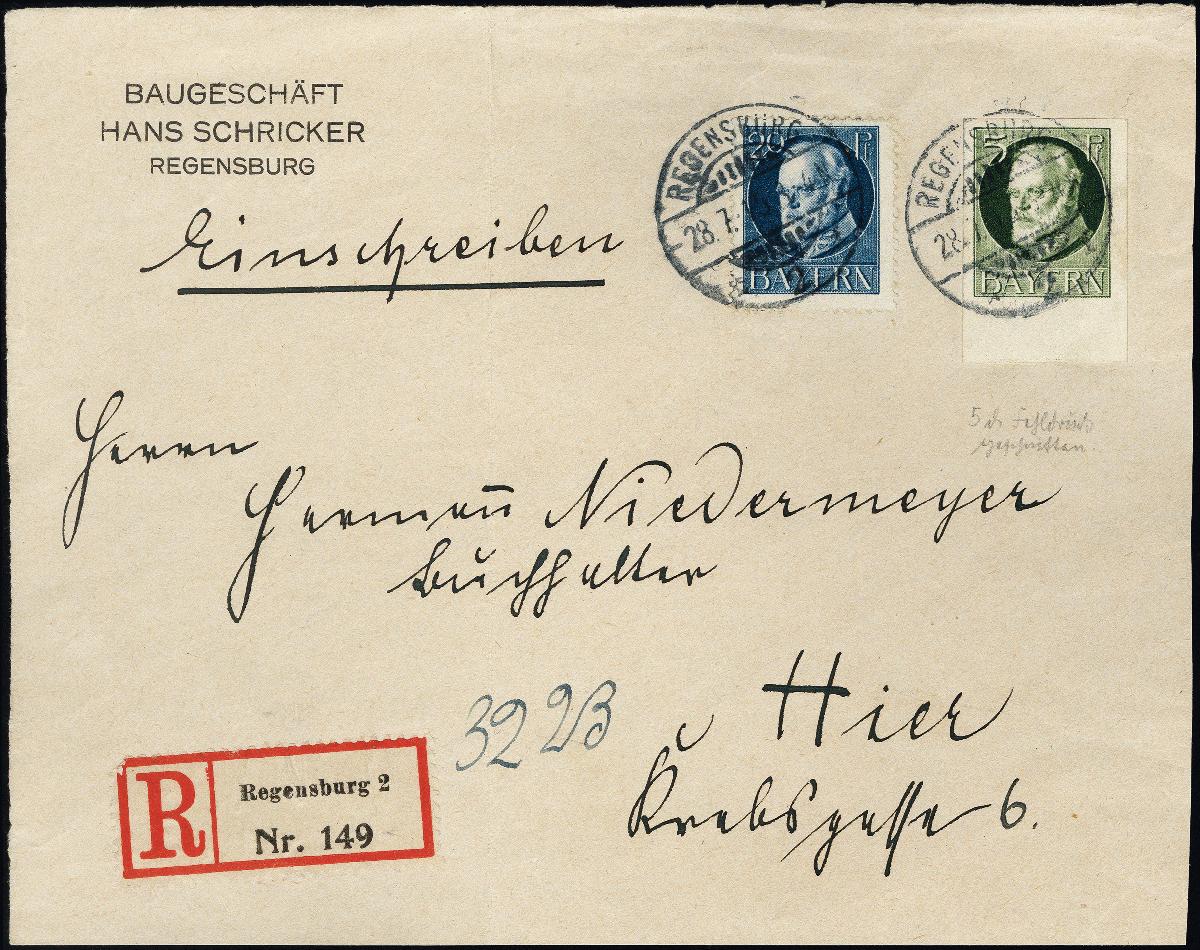 BAUGESCHÄFT
HANS SCHRICKER
REGENSBURG
Einschreiben
REGENSBURG
28.7.
2
20 Pf
BAYERN
REGENSBURG
28.
5 Pf
BAYERN
5 ₰ Fehldruck
geschnitten.
Herrn
Hermann Niedermeyer
Buchhalter
Hier
Krebsgasse 6.
32 2B
R
Regensburg 2
Nr. 149